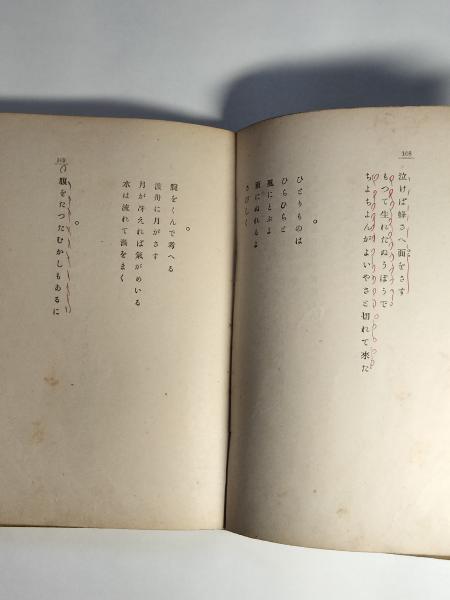 168
泣けば蜂さへ面をさす
もつて生れたぬうぼうで
ちよちよんがよいやさと切れて来た
ひとりものは
ひらひらと
風にとぶよ
雨にぬれるよ
さびしく
169
腕をくんで考へる
渡舟に月がさす
月が冴えれば氣がめいる
水は流れて渦をまく
腹をたつたむかしもあるに